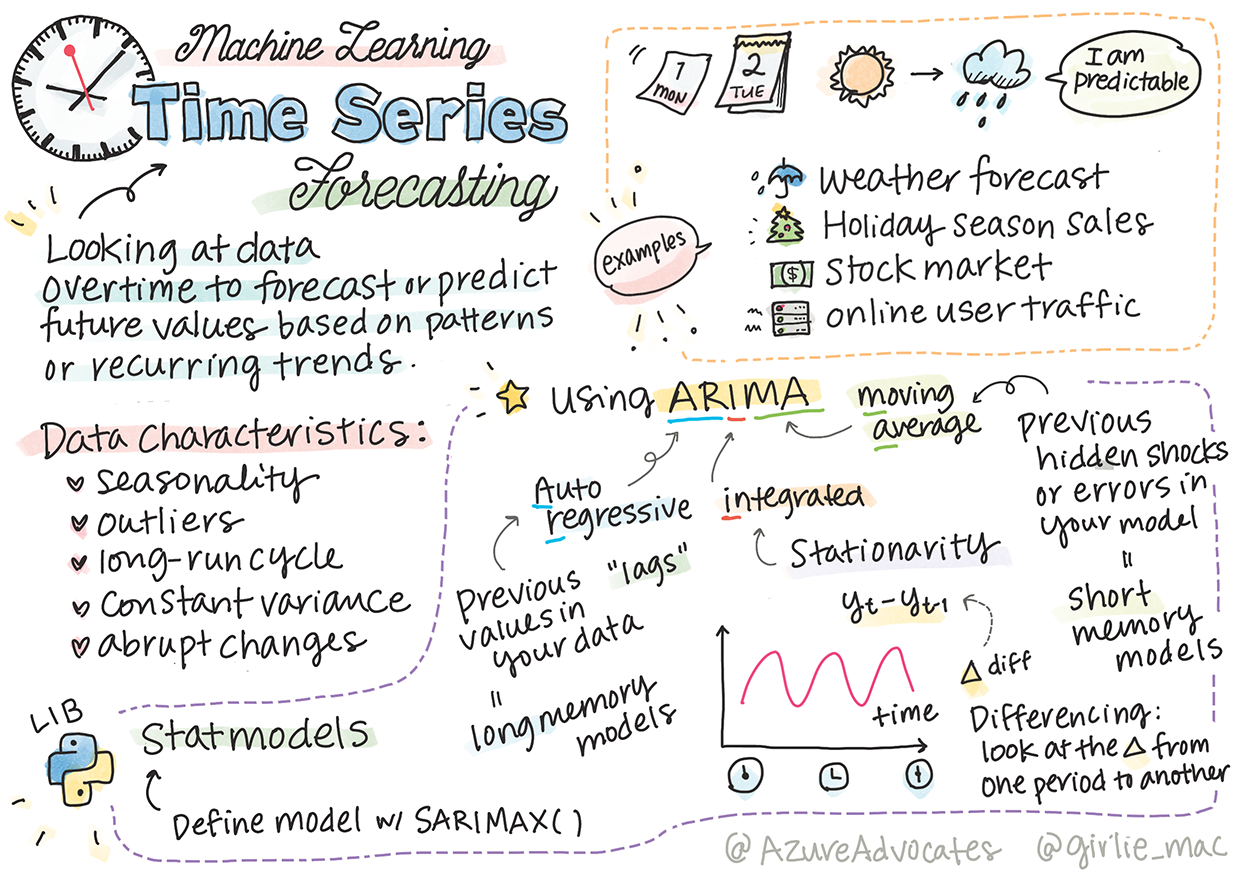 Machine Learning
Time Series
Forecasting
Looking at data
overtime to forecast or predict
future values based on patterns
or recurring trends.
1
MON
2
TUE
I am
predictable
examples
weather forecast
Holiday season sales
$
Stock market
online user traffic
Data Characteristics:
seasonality
outliers
long-run cycle
constant variance
abrupt changes
using ARIMA
moving
average
previous
hidden shocks
or errors in
your model
=
short
memory
models
Auto
regressive
"lags"
previous
values in
your data
=
long memory
models
integrated
Stationarity
yt - yt-1
Δ diff
time
Differencing:
look at the Δ from
one period to another
LIB
Statmodels
Define model w/ SARIMAX()
@AzureAdvocates @girlie_mac